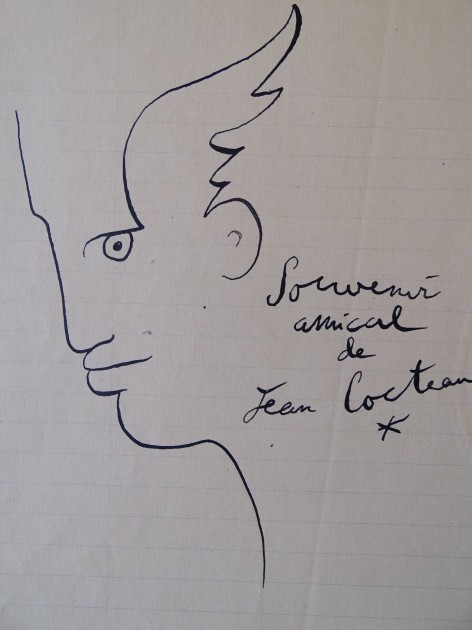 Souvenir
amical
de
Jean Cocteau
*